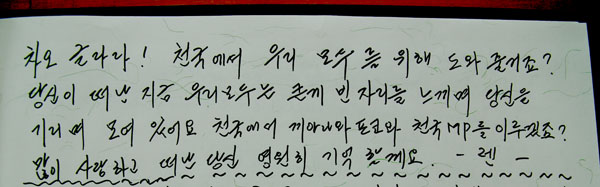 차오 클라라! 천국에서 우리 모두를 위해 도와 줄거죠?
당신이 떠난 지금 우리모두는 큰게 빈자리를 느끼며 당신을
기리며 모여 있어요 천국에서 끼아나와 포코와 천국MP를 이루겠죠?
많이 사랑하고 떠난 당신 영원히 기억 할께요. - 렌 -